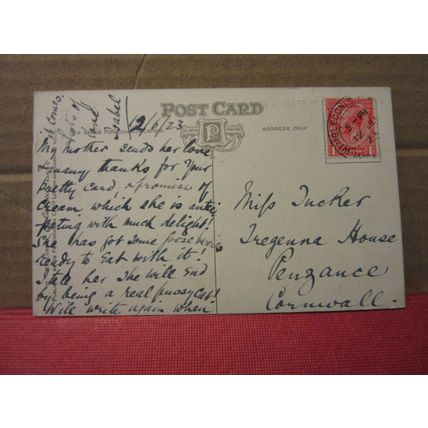 it comes.
Lots of
love
Isabel
POST CARD
ADDRESS ONLY
P
12/6/23
My Mother sends her love
& many thanks for your
pretty card, & promise of
Cream, which she is antici
pating with much delight!
She has got some gooseberries
ready to eat with it!
I tell her she will end
by being a real pussy cat!
Will write again when
WIMBLEDON
PM
12
1
Miss Tucker
Tregenna House
Penzance
Cornwall.